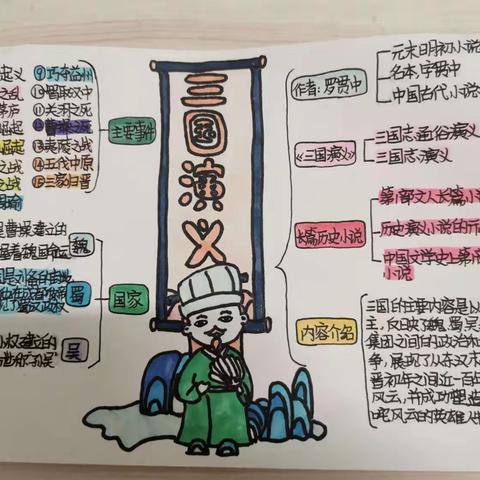 三国演义
主要事件
起义
之乱
茅庐
崛起
崛起
之战
之战
周瑜
⑨巧夺益州
⑩蜀取汉中
⑪关羽之死
⑫曹操之死
⑬夷陵之战
⑭五伐中原
⑮三家归晋
国家
魏
是曹操建立的
蜀
吴
权建立的
作者:罗贯中
元末明初小说
名本,字贯中
中国古代小说
《三国演义》
三国志通俗演义
三国志演义
长篇历史小说
第1部文人长篇小
历史演义小说的开
中国文学史上第1
小说
内容介绍
三国的主要内容是以
主,反映了魏、蜀、吴
集团之间的政治和
争,展现了从东汉末
晋初年之间近一百
风云,并成功塑造
咤风云的英雄人